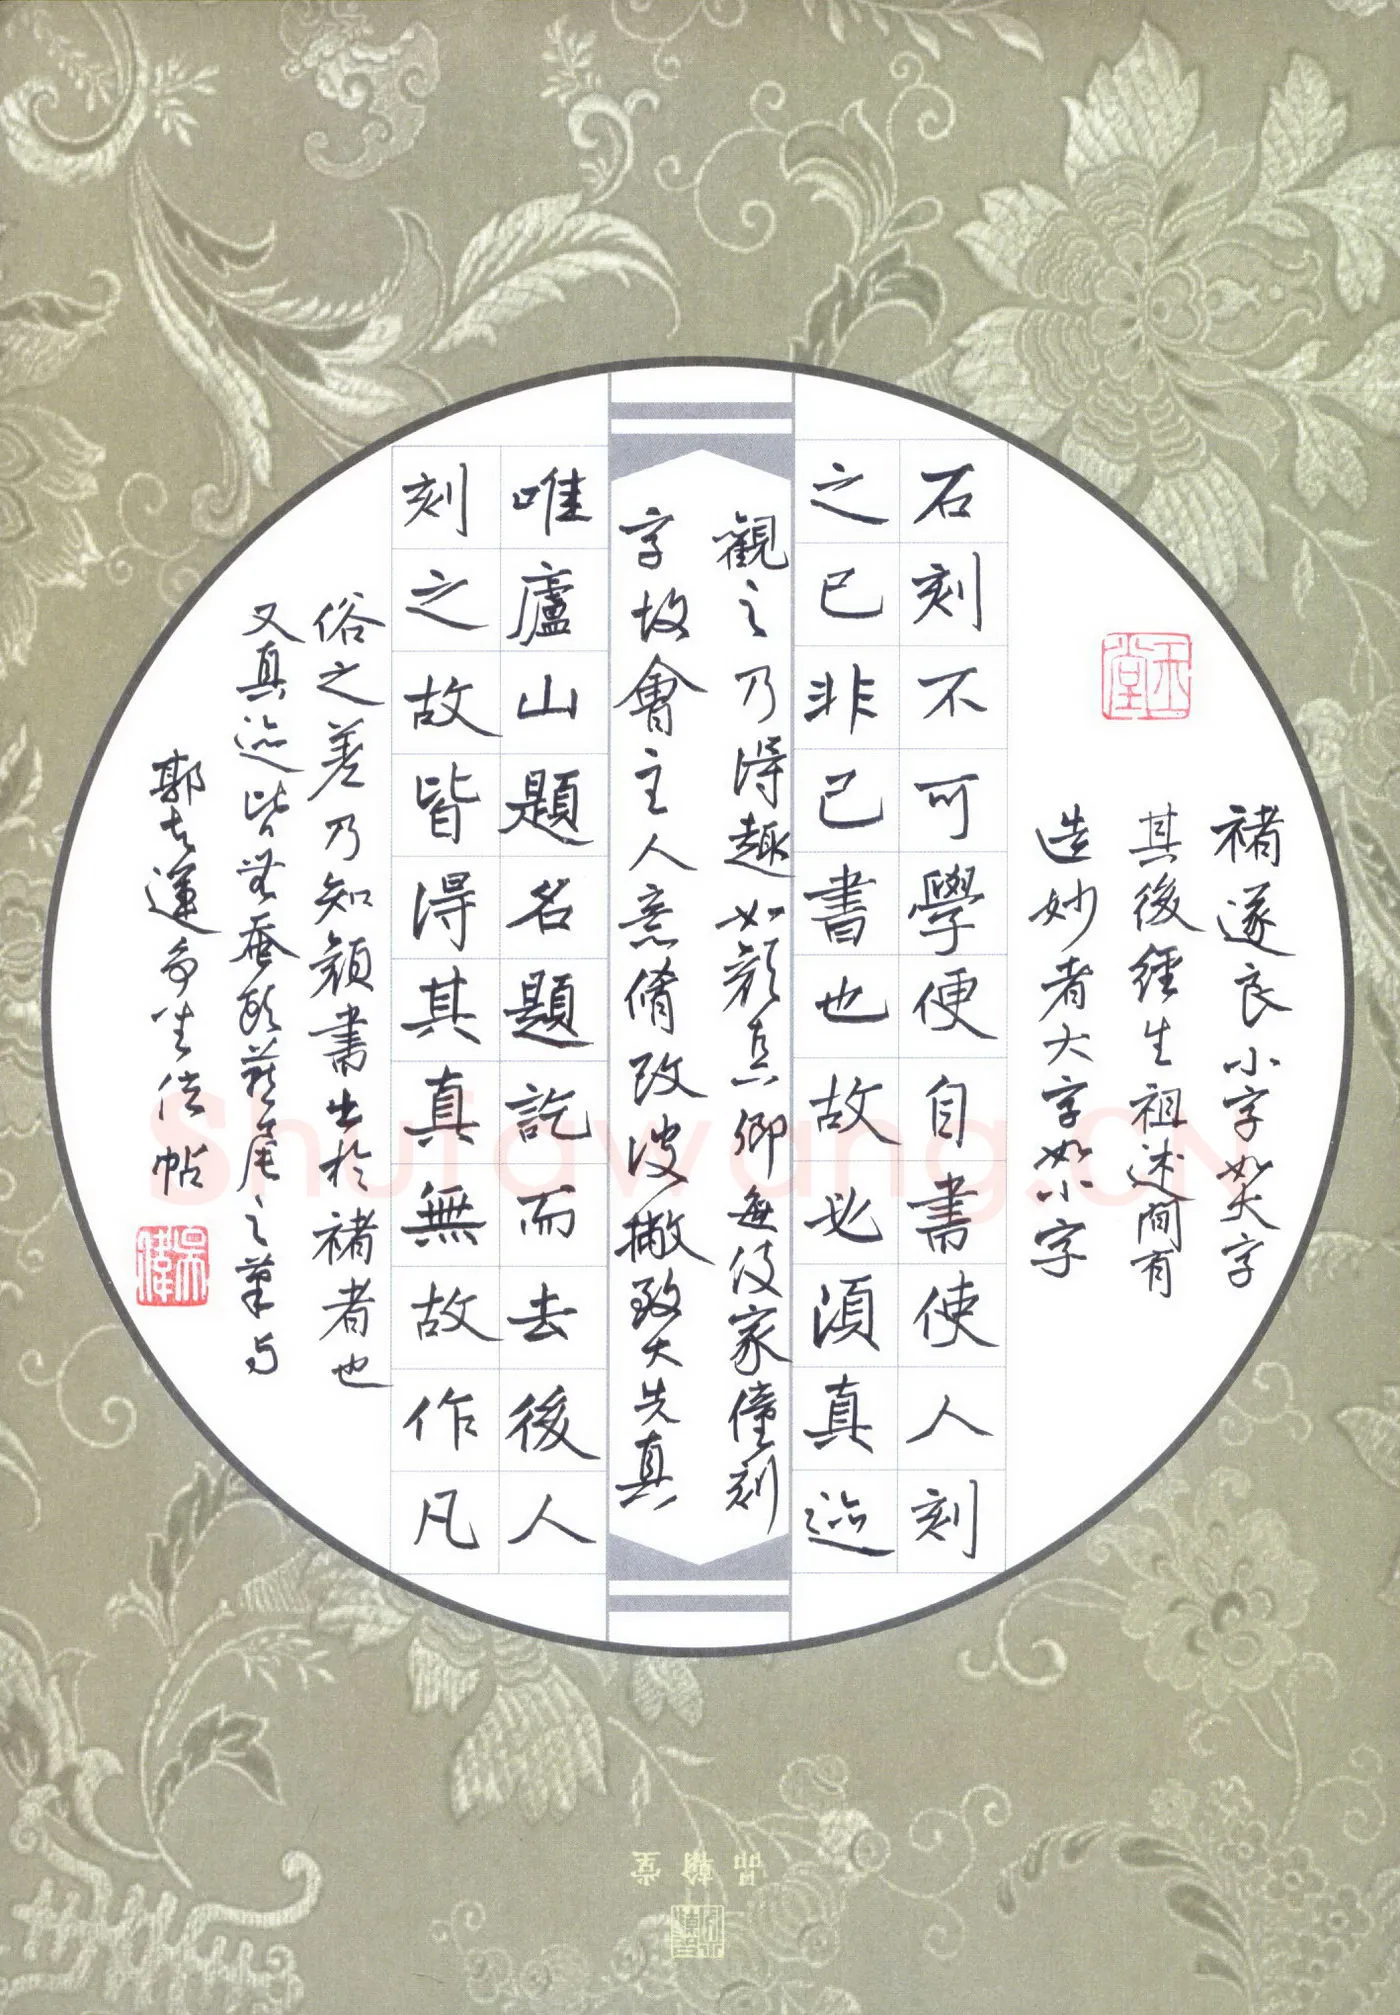 褚遂良小字如大字
其後經生祖述間有
造妙者大字如小字
石刻不可學便自書使人刻
之已非己書也故必須真迹
觀之乃得趣如顏真卿每使家僮刻
字故會主人意脩改波撇致大失真
唯廬山題名題訖而去後人
刻之故皆得其真無故作凡
俗之差乃知顏書出於褚者也
又真迹皆無蚕頭燕尾之筆與
郭知運爭坐位帖
玉堂
吳偉
品翰堂
Shufawang.CN